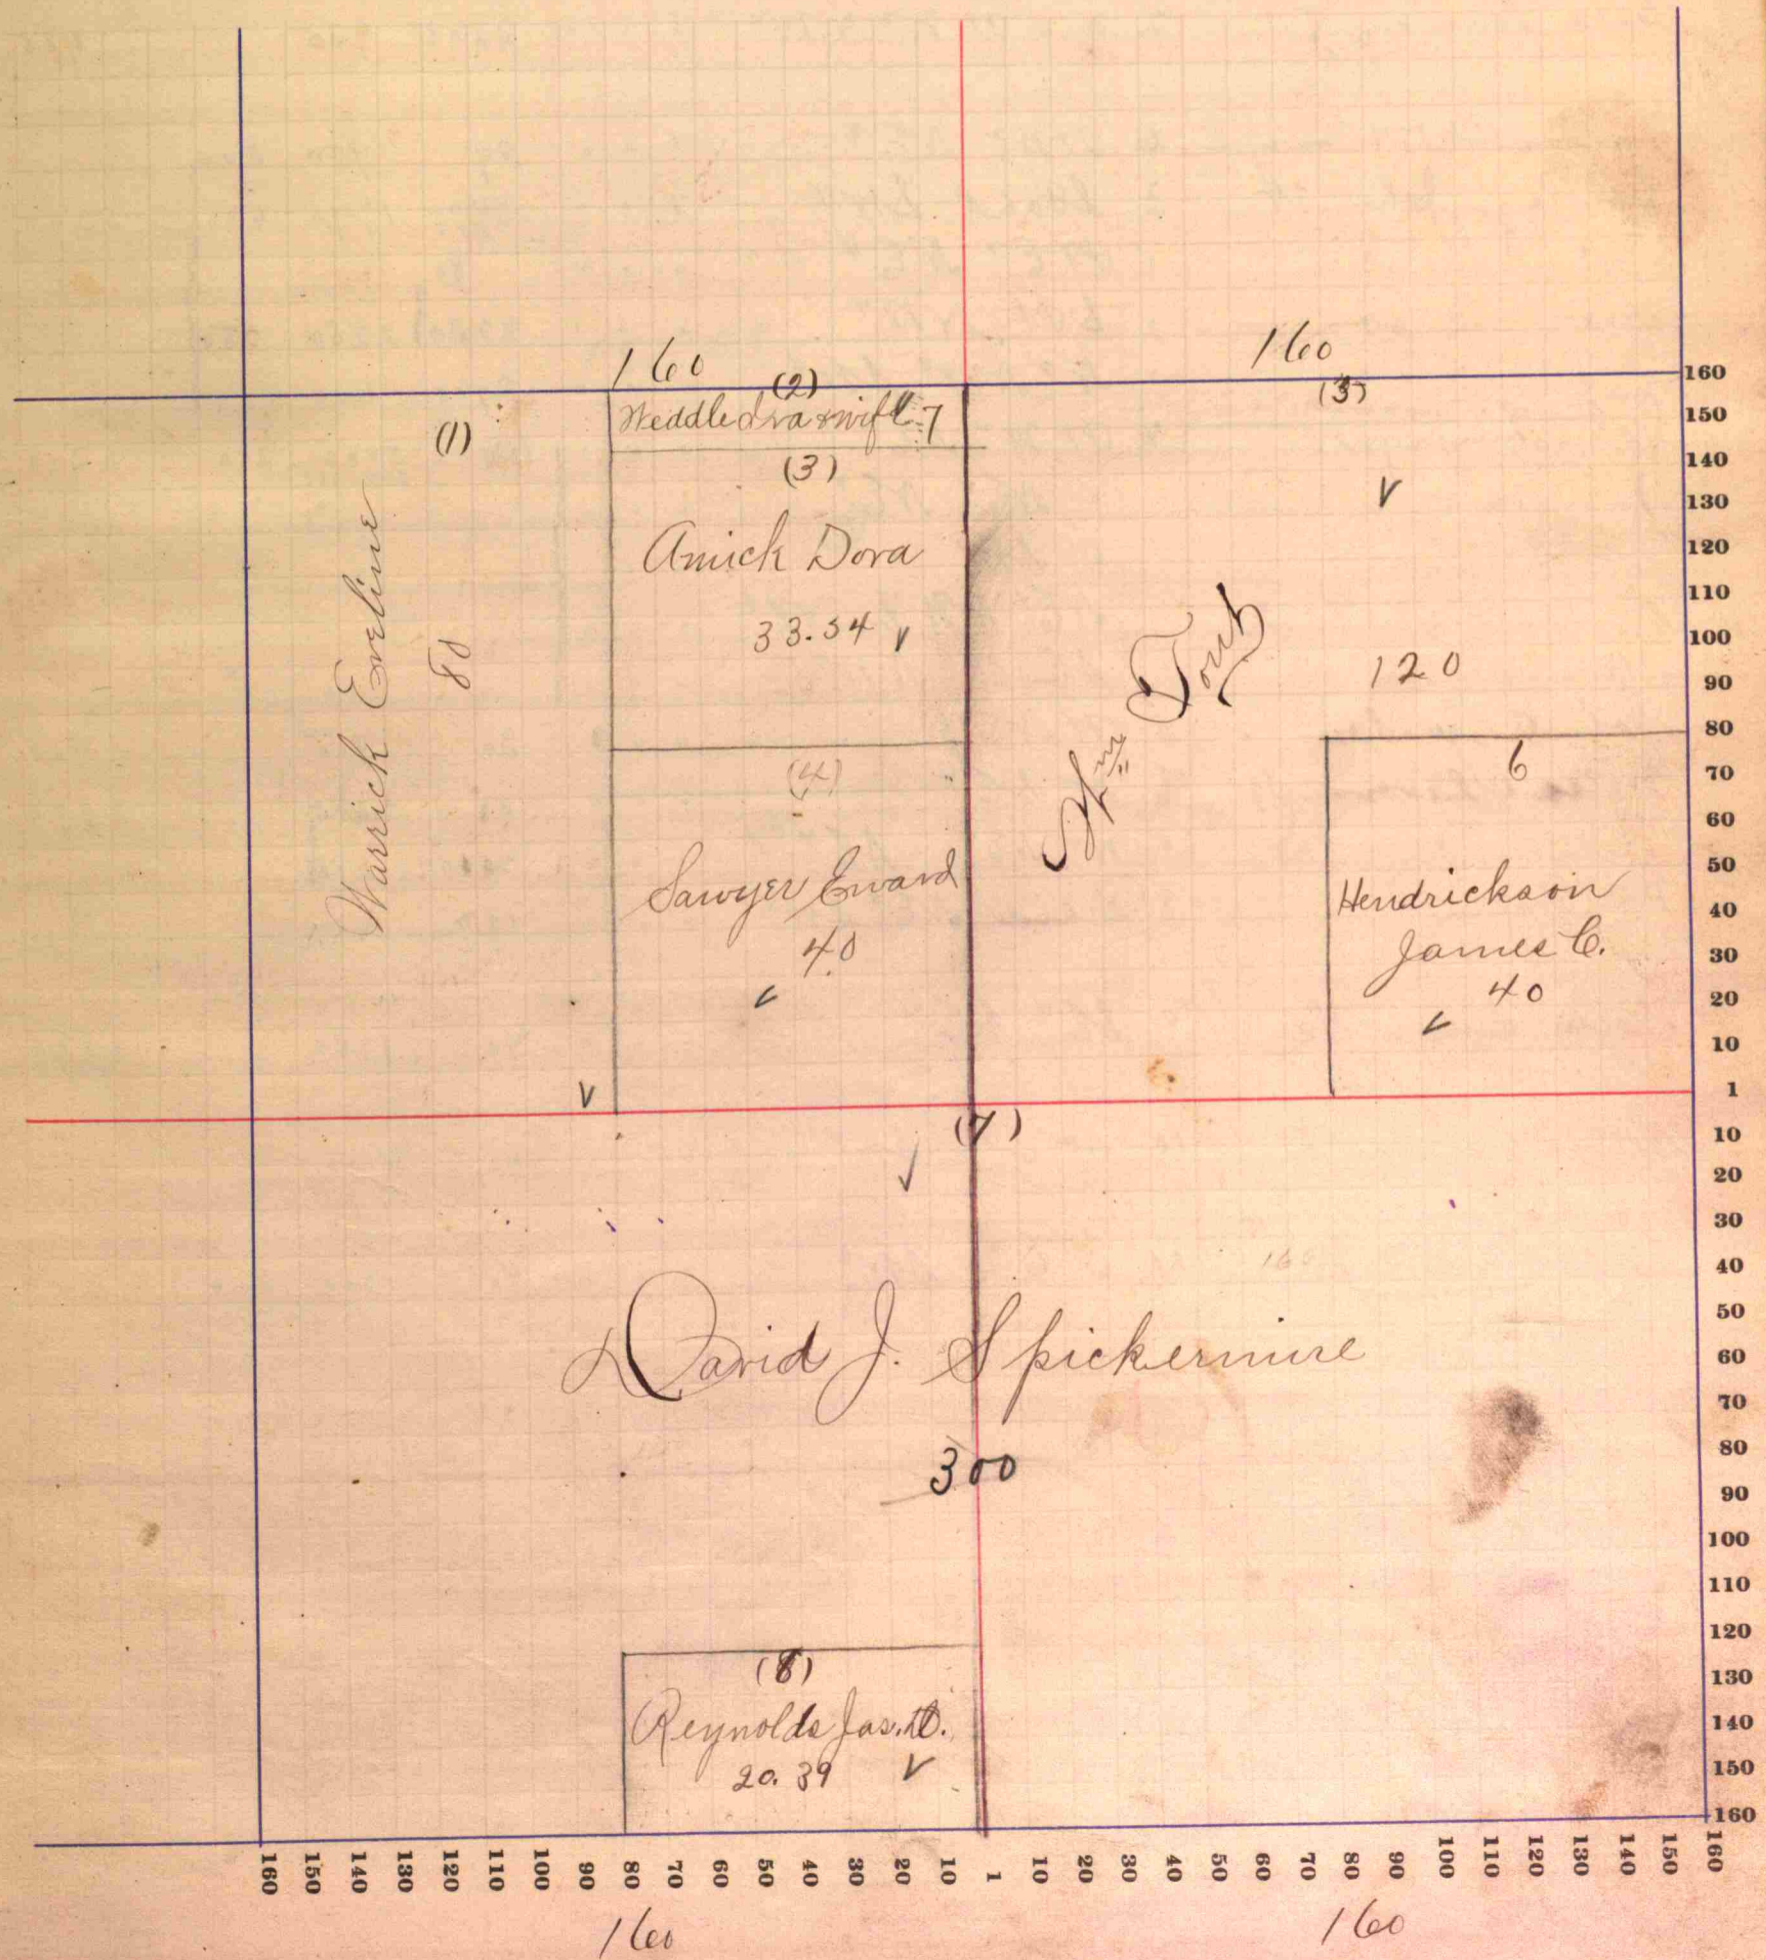 160
160
(1)
(2)
Weddle Ira & wife 7
(3)
Amick Dora
33.54
(4)
Sawyer Eward
40
Warrick Eveline
80
(5)
Wm
120
6
Hendrickson
James C.
40
(7)
160
David J. Spickermire
300
(8)
Reynolds Jas.
20.39
160
150
140
130
120
110
100
90
80
70
60
50
40
30
20
10
1
10
20
30
40
50
60
70
80
90
100
110
120
130
140
150
160
160 150 140 130 120 110 100 90 80 70 60 50 40 30 20 10 1 10 20 30 40 50 60 70 80 90 100 110 120 130 140 150 160
160
160